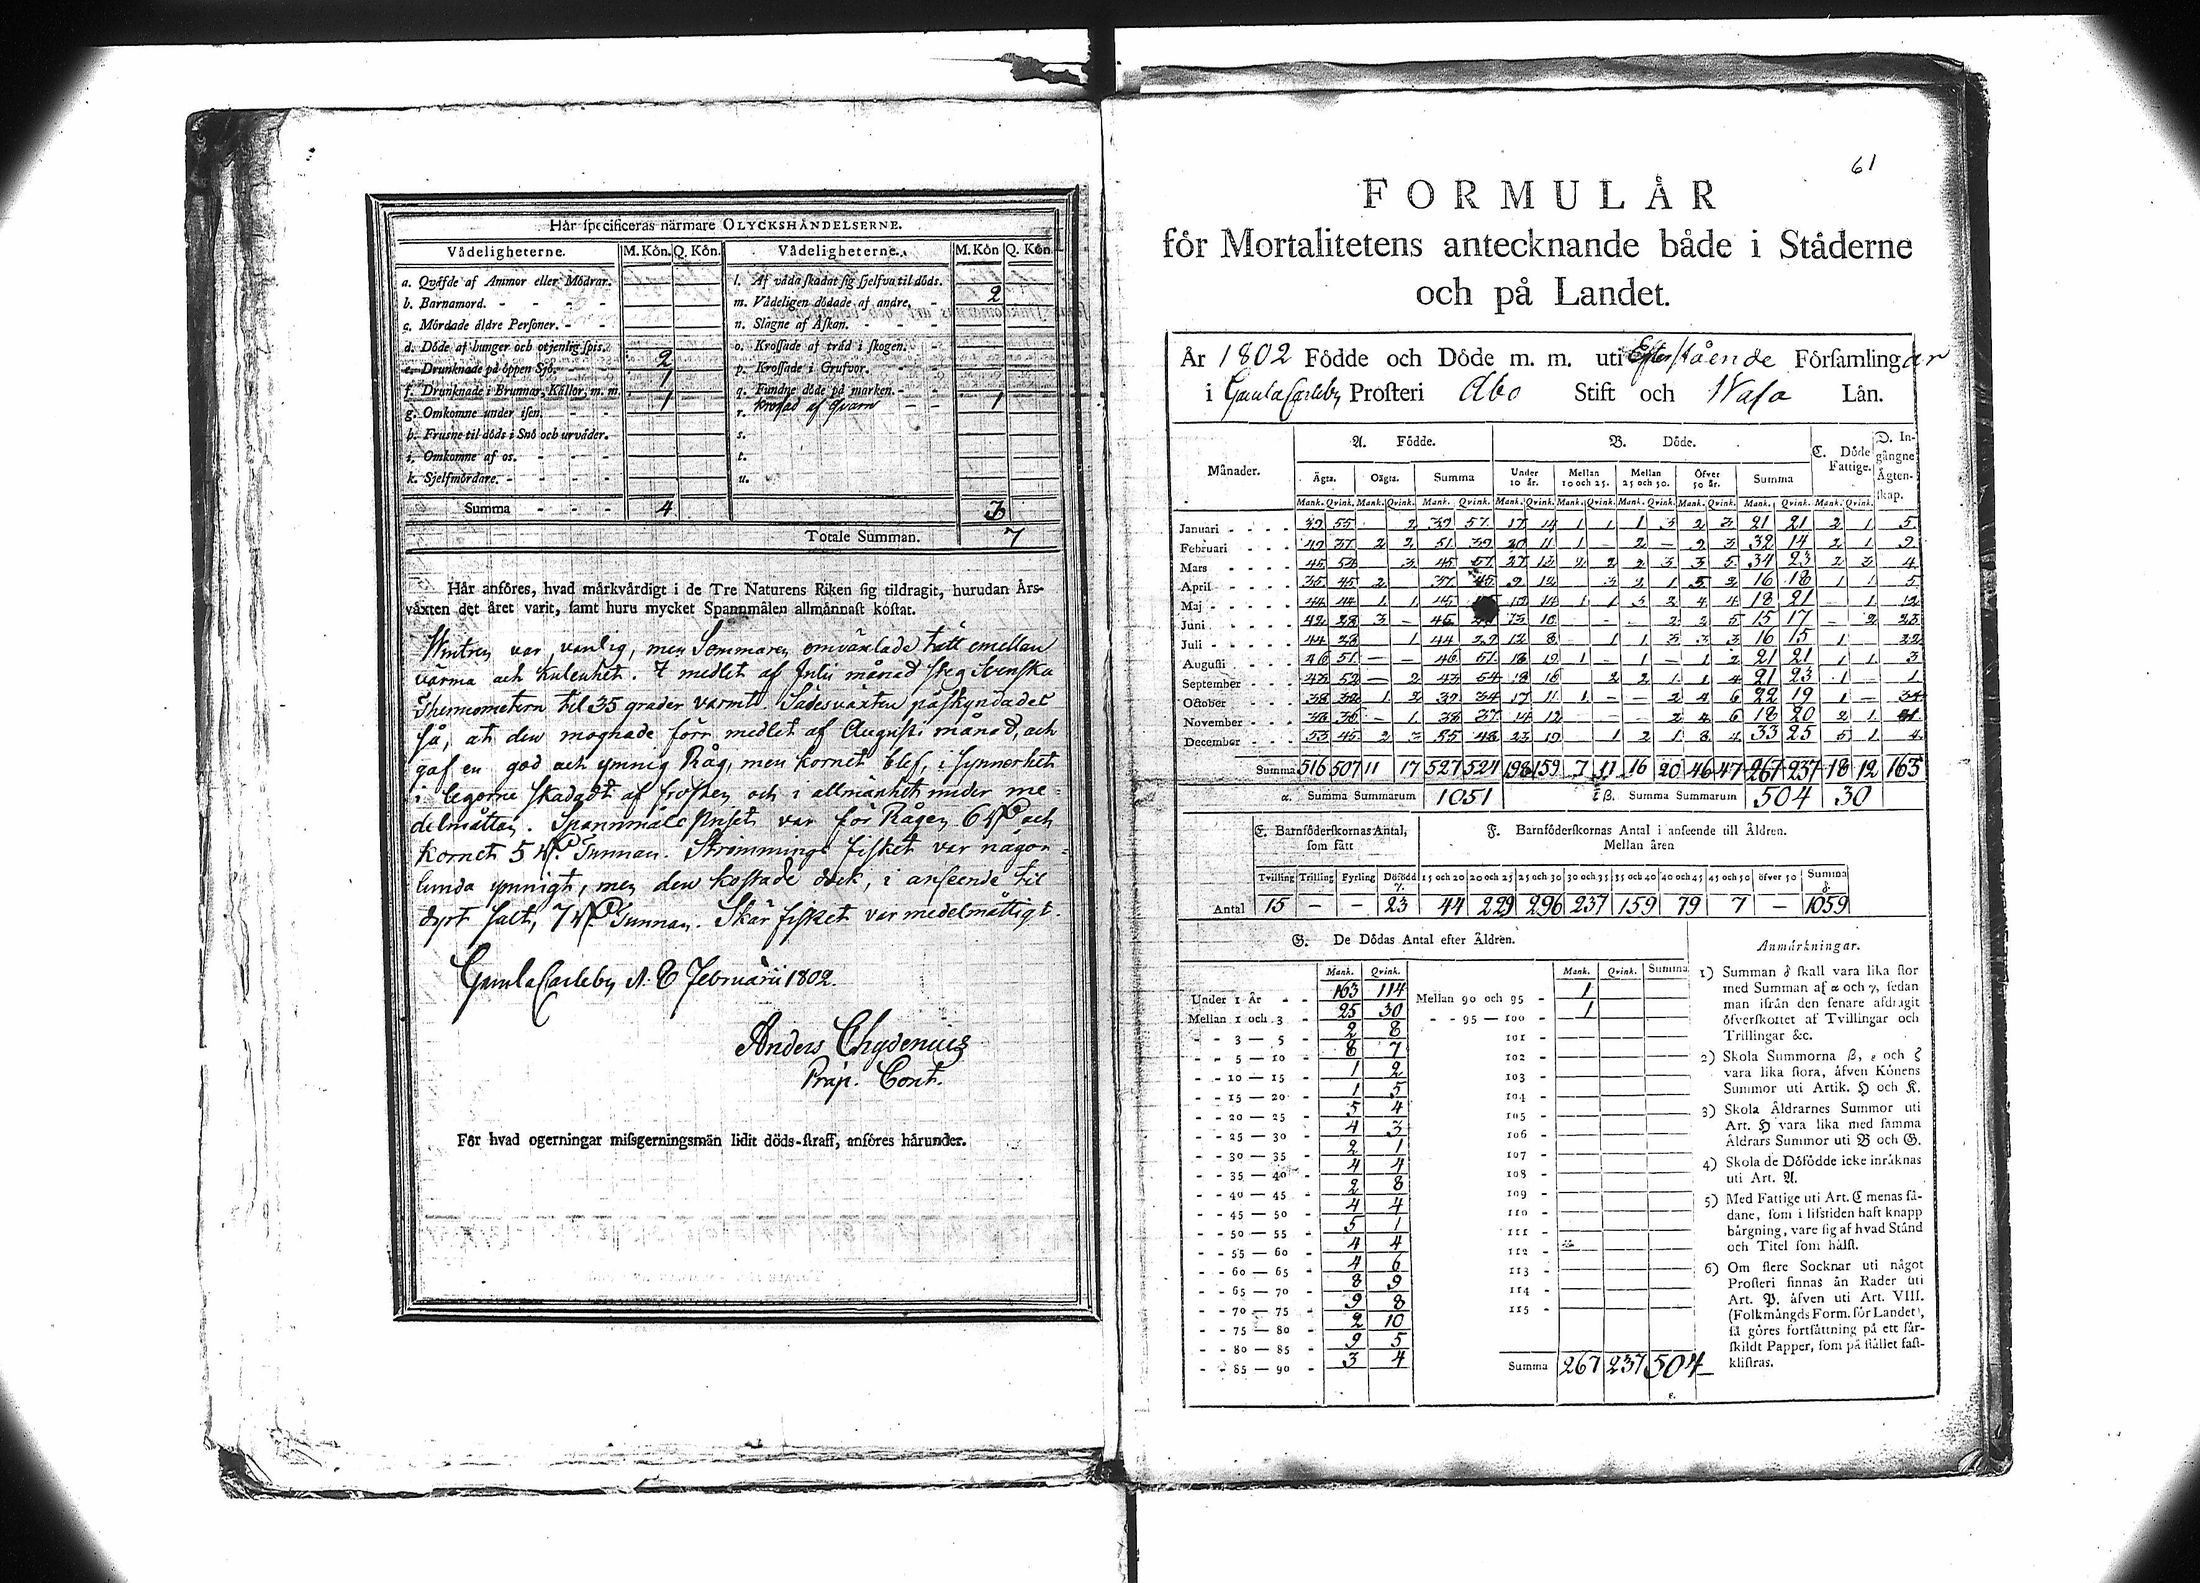 Här specificeras närmare OLYCKSHÄNDELSERNE.
Vådeligheterne. M. Kön. Q. Kön. Vådeligheterne. M. Kön Q. Kön
a. Qväfde af Ammor eller Mödrar. l. Af våda skadat sig sjelfva til döds.
b. Barnamord. - - - m. Vådeligen dödade af andre. - 2
c. Mördade äldre Personer. - - n. Slagne af Åskan. - - -
d. Döde af hunger och otjenlig spis. o. Krossade af träd i skogen. -
e. Drunknade på öppen Sjö. - 2 p. Krossade i Grufvor. - -
f. Drunknade i Brunnar, Källor, m. m. 1 q. Fundne döde på marken. - -
g. Omkomne under isen. - - 1 r. Krossad af Qvarn - - 1
h. Frusne til döds i Snö och urväder. s.
i. Omkomne af os. - - - t.
k. Sjelfmördare. - - - - u.
Summa - - - 4 3
Totale Summan. 7
Här anföres, hvad märkvärdigt i de Tre Naturens Riken sig tildragit, hurudan Års-
växten det året varit, samt huru mycket Spannmålen allmännast kostat.
Wintren var vanlig, men Sommaren omväxlade tätt emellan
värma och kulenhet. I medlet af Julii månad steg Svenska
Thermometern til 35 grader varmt. Sädesväxten påskyndades
så, at den mognade förr medlet af Augusti månad, och
gaf en god och ymnig Råg, men kornet blef, i synnerhet
i legorne skadadt af frosten och i allmänhet under me-
delmåttan. Spannmåls priset var för Rågen 6 och
Kornet 5 Tunnan. Strömmings fisket var någor-
lunda ymnigt, men den kostade dock, i anseende til
dyrt salt, 7 Tunnan. Skär fisket var medelmåttigt.
Gamla Carleby d. 6 Februarii 1802.
Anders Chydenius
Præp. Cont.
För hvad ogerningar missgerningsmän lidit döds-straff, anföres härunder.
61
FORMULÄR
för Mortalitetens antecknande både i Städerne
och på Landet.
År 1802 Födde och Döde m. m. uti Efterstående Församlingar
i Gamla Carleby Prosteri Åbo Stift och Wasa Län.
Månader. A. Födde. B. Döde. C. Döde Fattige. D. Ingångne Ägtenskap.
Ägta. Oägta. Summa Under 10 år. Mellan 10 och 25. Mellan 25 och 50. Öfver 50 år. Summa
Mank. Qvink. Mank. Qvink. Mank. Qvink. Mank. Qvink. Mank. Qvink. Mank. Qvink. Mank. Qvink. Mank. Qvink. Mank. Qvink.
Januari - - - - 39 55 2 39 57 17 14 1 1 1 3 2 3 21 21 2 1 5
Februari - - - 49 37 2 2 51 39 20 11 1 - 2 - 9 3 32 14 2 1 9
Mars - - - - 45 54 3 45 57 27 13 2 2 2 3 3 5 34 23 2 3 4
April - - - - 35 45 2 37 45 9 12 3 2 1 5 2 16 18 1 1 5
Maj - - - - 44 44 1 1 45 10 14 1 1 3 2 4 4 18 21 - 1 12
Juni - - - - 42 28 3 - 45 13 10 2 2 5 15 17 - 2 23
Juli - - - - 44 28 1 44 29 12 8 1 1 3 3 3 16 15 1 22
Augusti - - - 46 51 - - 46 51 18 19 1 - 1 - 1 2 21 21 1 1 3
September - - - 43 52 - 2 43 54 18 16 2 2 1 1 4 21 23 1 1
October - - - 38 32 1 2 39 34 17 11 1 - - 2 4 6 22 19 1 - 34
November - - - 38 36 - 1 38 37 14 12 2 4 6 18 20 2 1 41
December - - - 53 45 2 3 55 48 23 19 1 2 1 8 4 33 25 5 1 4
Summa 516 507 11 17 527 524 198 159 7 11 16 20 46 47 267 237 18 12 163
α. Summa Summarum 1051 β. Summa Summarum 504 30
E. Barnföderskornas Antal, som fått
F. Barnföderskornas Antal i anseende till Åldren.
Mellan åren
Tvilling Trilling Fyrling Dödfödd γ. 15 och 20 20 och 25 25 och 30 30 och 35 35 och 40 40 och 45 45 och 50 öfver 50 Summa δ.
Antal 15 - - 23 44 229 296 237 159 79 7 - 1059
G. De Dödas Antal efter Åldren.
Mank. Qvink. Mank. Qvink. Summa
Under 1 År - - 163 114 Mellan 90 och 95 - 1
Mellan 1 och 3 - 25 30 - - 95 — 100 - 1
- - 3 — 5 - 2 8 101 -
- - 5 — 10 - 8 7 102 -
- - 10 — 15 - 1 2 103 -
- - 15 — 20 - 1 5 104 -
- - 20 — 25 - 5 4 105 -
- - 25 — 30 - 4 3 106 -
- - 30 — 35 - 2 1 107 -
- - 35 — 40 - 4 4 108 -
- - 40 — 45 - 2 8 109 -
- - 45 — 50 - 4 4 110 -
- - 50 — 55 - 5 1 111 -
- - 55 — 60 - 4 4 112 -
- - 60 — 65 - 4 6 113 -
- - 65 — 70 - 8 9 114 -
- - 70 — 75 - 9 8 115 -
- - 75 — 80 - 2 10
- - 80 — 85 - 9 5
- - 85 — 90 - 3 4 Summa 267 237 504
ε.
Anmärkningar.
1) Summan δ skall vara lika stor
med Summan af α och γ, sedan
man ifrån den senare afdragit
öfverskottet af Tvillingar och
Trillingar &c.
2) Skola Summorna β, ε och ζ
vara lika stora, äfven Könens
Summor uti Artik. H och K.
3) Skola Åldrarnes Summor uti
Art. H vara lika med samma
Åldrars Summor uti B och G.
4) Skola de Döfödde icke inräknas
uti Art. A.
5) Med Fattige uti Art. C menas så-
dane, som i lifstiden haft knapp
bärgning, vare sig af hvad Stånd
och Titel som hälst.
6) Om flere Socknar uti något
Prosteri finnas än Rader uti
Art. P, äfven uti Art. VIII.
(Folkmängds Form. för Landet),
så göres fortsättning på ett sär-
skildt Papper, som på stället fast-
klistras.